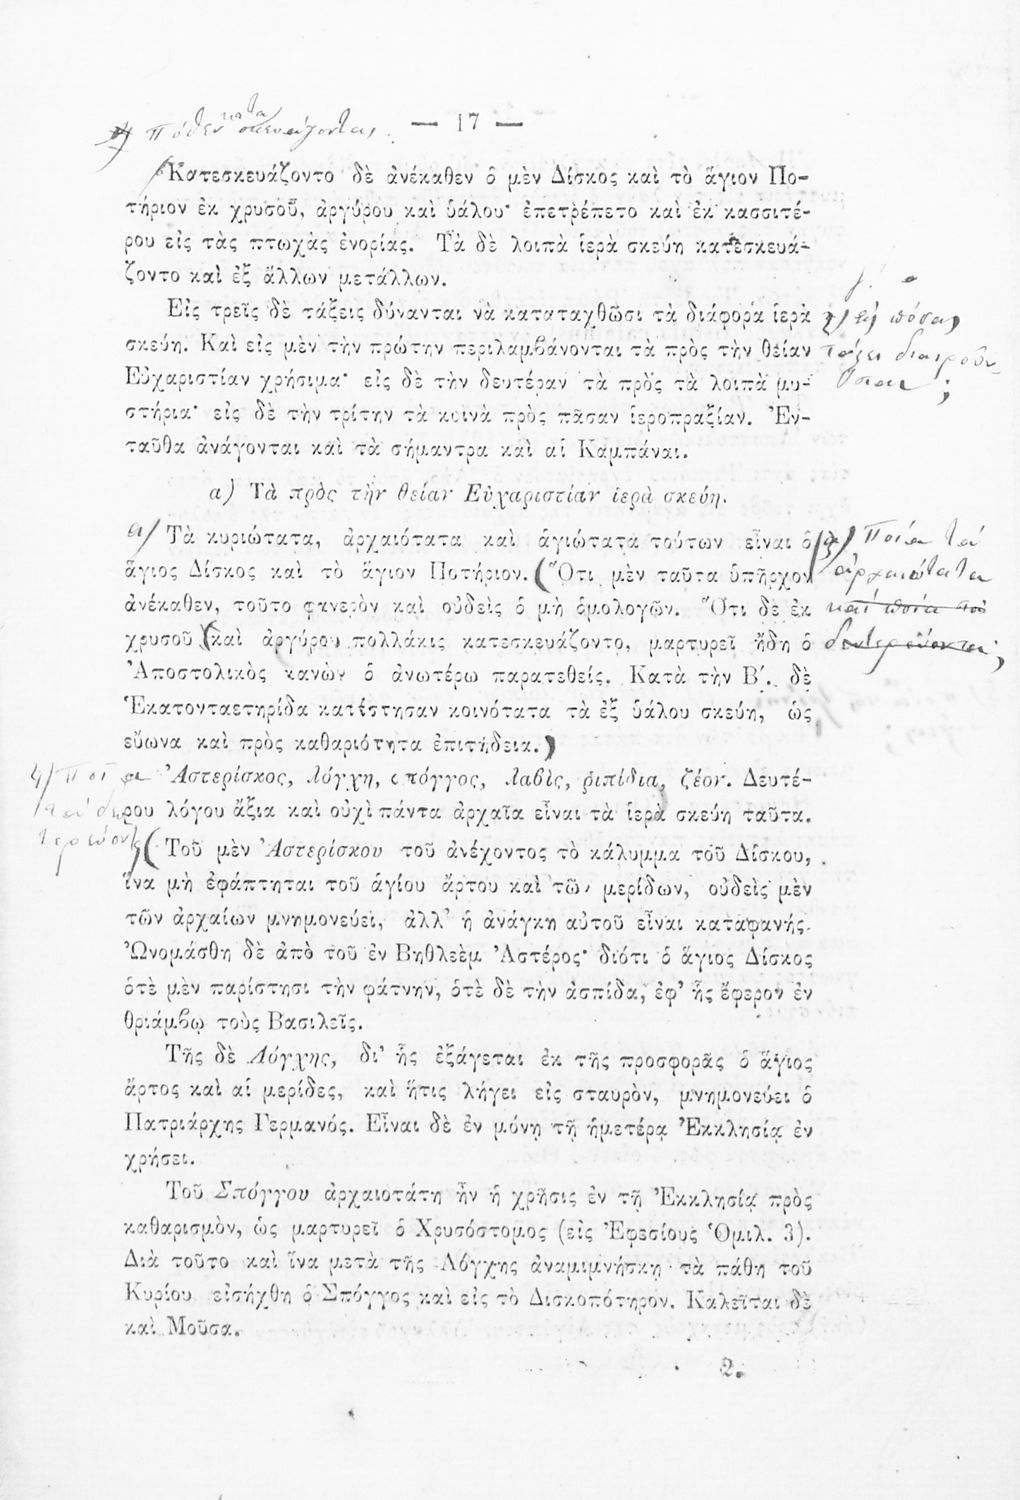 — 17 —
πόθεν κατα
σκευάζονται
Κατεσκευάζοντο δὲ ἀνέκαθεν ὁ μὲν Δίσκος καὶ τὸ ἅγιον Πο-
τήριον ἐκ χρυσοῦ, ἀργύρου καὶ ὑάλου· ἐπετρέπετο καὶ ἐκ κασσιτέ-
ρου εἰς τὰς πτωχὰς ἐνορίας. Τὰ δὲ λοιπὰ ἱερὰ σκεύη κατεσκευά-
ζοντο καὶ ἐξ ἄλλων μετάλλων.
Εἰς τρεῖς δὲ τάξεις δύνανται νὰ καταταχθῶσι τὰ διάφορα ἱερὰ
σκεύη. Καὶ εἰς μὲν τὴν πρώτην περιλαμβάνονται τὰ πρὸς τὴν θείαν
Εὐχαριστίαν χρήσιμα· εἰς δὲ τὴν δευτέραν τὰ πρὸς τὰ λοιπὰ μυ-
στήρια· εἰς δὲ τὴν τρίτην τὰ κοινὰ πρὸς πᾶσαν ἱεροπραξίαν. Ἐν-
ταῦθα ἀνάγονται καὶ τὰ σήμαντρα καὶ αἱ Καμπάναι.
εἰς πόσας
τάξεις διαιροῦν-
ται;
α) Τὰ πρὸς τὴν θείαν Εὐχαριστίαν ἱερὰ σκεύη.
α) Τὰ κυριώτατα, ἀρχαιότατα καὶ ἁγιώτατα τούτων εἶναι ὁ
ἅγιος Δίσκος καὶ τὸ ἅγιον Ποτήριον. (Ὅτι μὲν ταῦτα ὑπῆρχον
ἀνέκαθεν, τοῦτο φανερὸν καὶ οὐδεὶς ὁ μὴ ὁμολογῶν. Ὅτι δὲ ἐκ
χρυσοῦ καὶ ἀργύρου πολλάκις κατεσκευάζοντο, μαρτυρεῖ ἤδη ὁ
Ἀποστολικὸς κανὼν ὁ ἀνωτέρω παρατεθείς. Κατὰ τὴν Β΄. δὲ
Ἑκατονταετηρίδα κατέστησαν κοινότατα τὰ ἐξ ὑάλου σκεύη, ὡς
εὔωνα καὶ πρὸς καθαριότητα ἐπιτήδεια.)
Ποῖα τὰ
ἀρχαιότατα
καὶ ποῖα τὰ
δευτερεύοντα;
4) Ποῖα
τὰ δευ
τερεύοντα;
Ἀστερίσκος, λόγχη, σπόγγος, λαβὶς, ῥιπίδια, ζέον. Δευτέ-
ρου λόγου ἄξια καὶ οὐχὶ πάντα ἀρχαῖα εἶναι τὰ ἱερὰ σκεύη ταῦτα.
(Τοῦ μὲν Ἀστερίσκου τοῦ ἀνέχοντος τὸ κάλυμμα τοῦ Δίσκου,
ἵνα μὴ ἐφάπτηται τοῦ ἁγίου ἄρτου καὶ τῶν μερίδων, οὐδεὶς μὲν
τῶν ἀρχαίων μνημονεύει, ἀλλ' ἡ ἀνάγκη αὐτοῦ εἶναι καταφανής.
Ὠνομάσθη δὲ ἀπὸ τοῦ ἐν Βηθλεὲμ Ἀστέρος· διότι ὁ ἅγιος Δίσκος
ὁτὲ μὲν παρίστησι τὴν φάτνην, ὁτὲ δὲ τὴν ἀσπίδα, ἐφ' ἧς ἔφερον ἐν
θριάμβῳ τοὺς Βασιλεῖς.
Τῆς δὲ Λόγχης, δι' ἧς ἐξάγεται ἐκ τῆς προσφορᾶς ὁ ἅγιος
ἄρτος καὶ αἱ μερίδες, καὶ ἥτις λήγει εἰς σταυρὸν, μνημονεύει ὁ
Πατριάρχης Γερμανός. Εἶναι δὲ ἐν μόνῃ τῇ ἡμετέρᾳ Ἐκκλησίᾳ ἐν
χρήσει.
Τοῦ Σπόγγου ἀρχαιοτάτη ἦν ἡ χρῆσις ἐν τῇ Ἐκκλησίᾳ πρὸς
καθαρισμὸν, ὡς μαρτυρεῖ ὁ Χρυσόστομος (εἰς Ἐφεσίους Ὁμιλ. 3).
Διὰ τοῦτο καὶ ἵνα μετὰ τῆς Λόγχης ἀναμιμνήσκῃ τὰ πάθη τοῦ
Κυρίου εἰσήχθη ὁ Σπόγγος καὶ εἰς τὸ Δισκοπότηρον. Καλεῖται δὲ
καὶ Μοῦσα.
2.